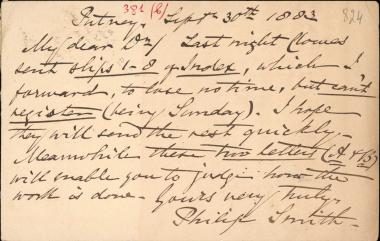 381 (6)
824
Putney, Septr 30th 1883
My dear Dr/ Last night Clowes
sent slips 1-8 of Index, which I
forward, to lose no time, but can't
register (being Sunday). I hope
they will send the rest quickly.
Meanwhile these two letters (A & B)
will enable you to judge how the
work is done. Yours very truly,
Philip Smith.